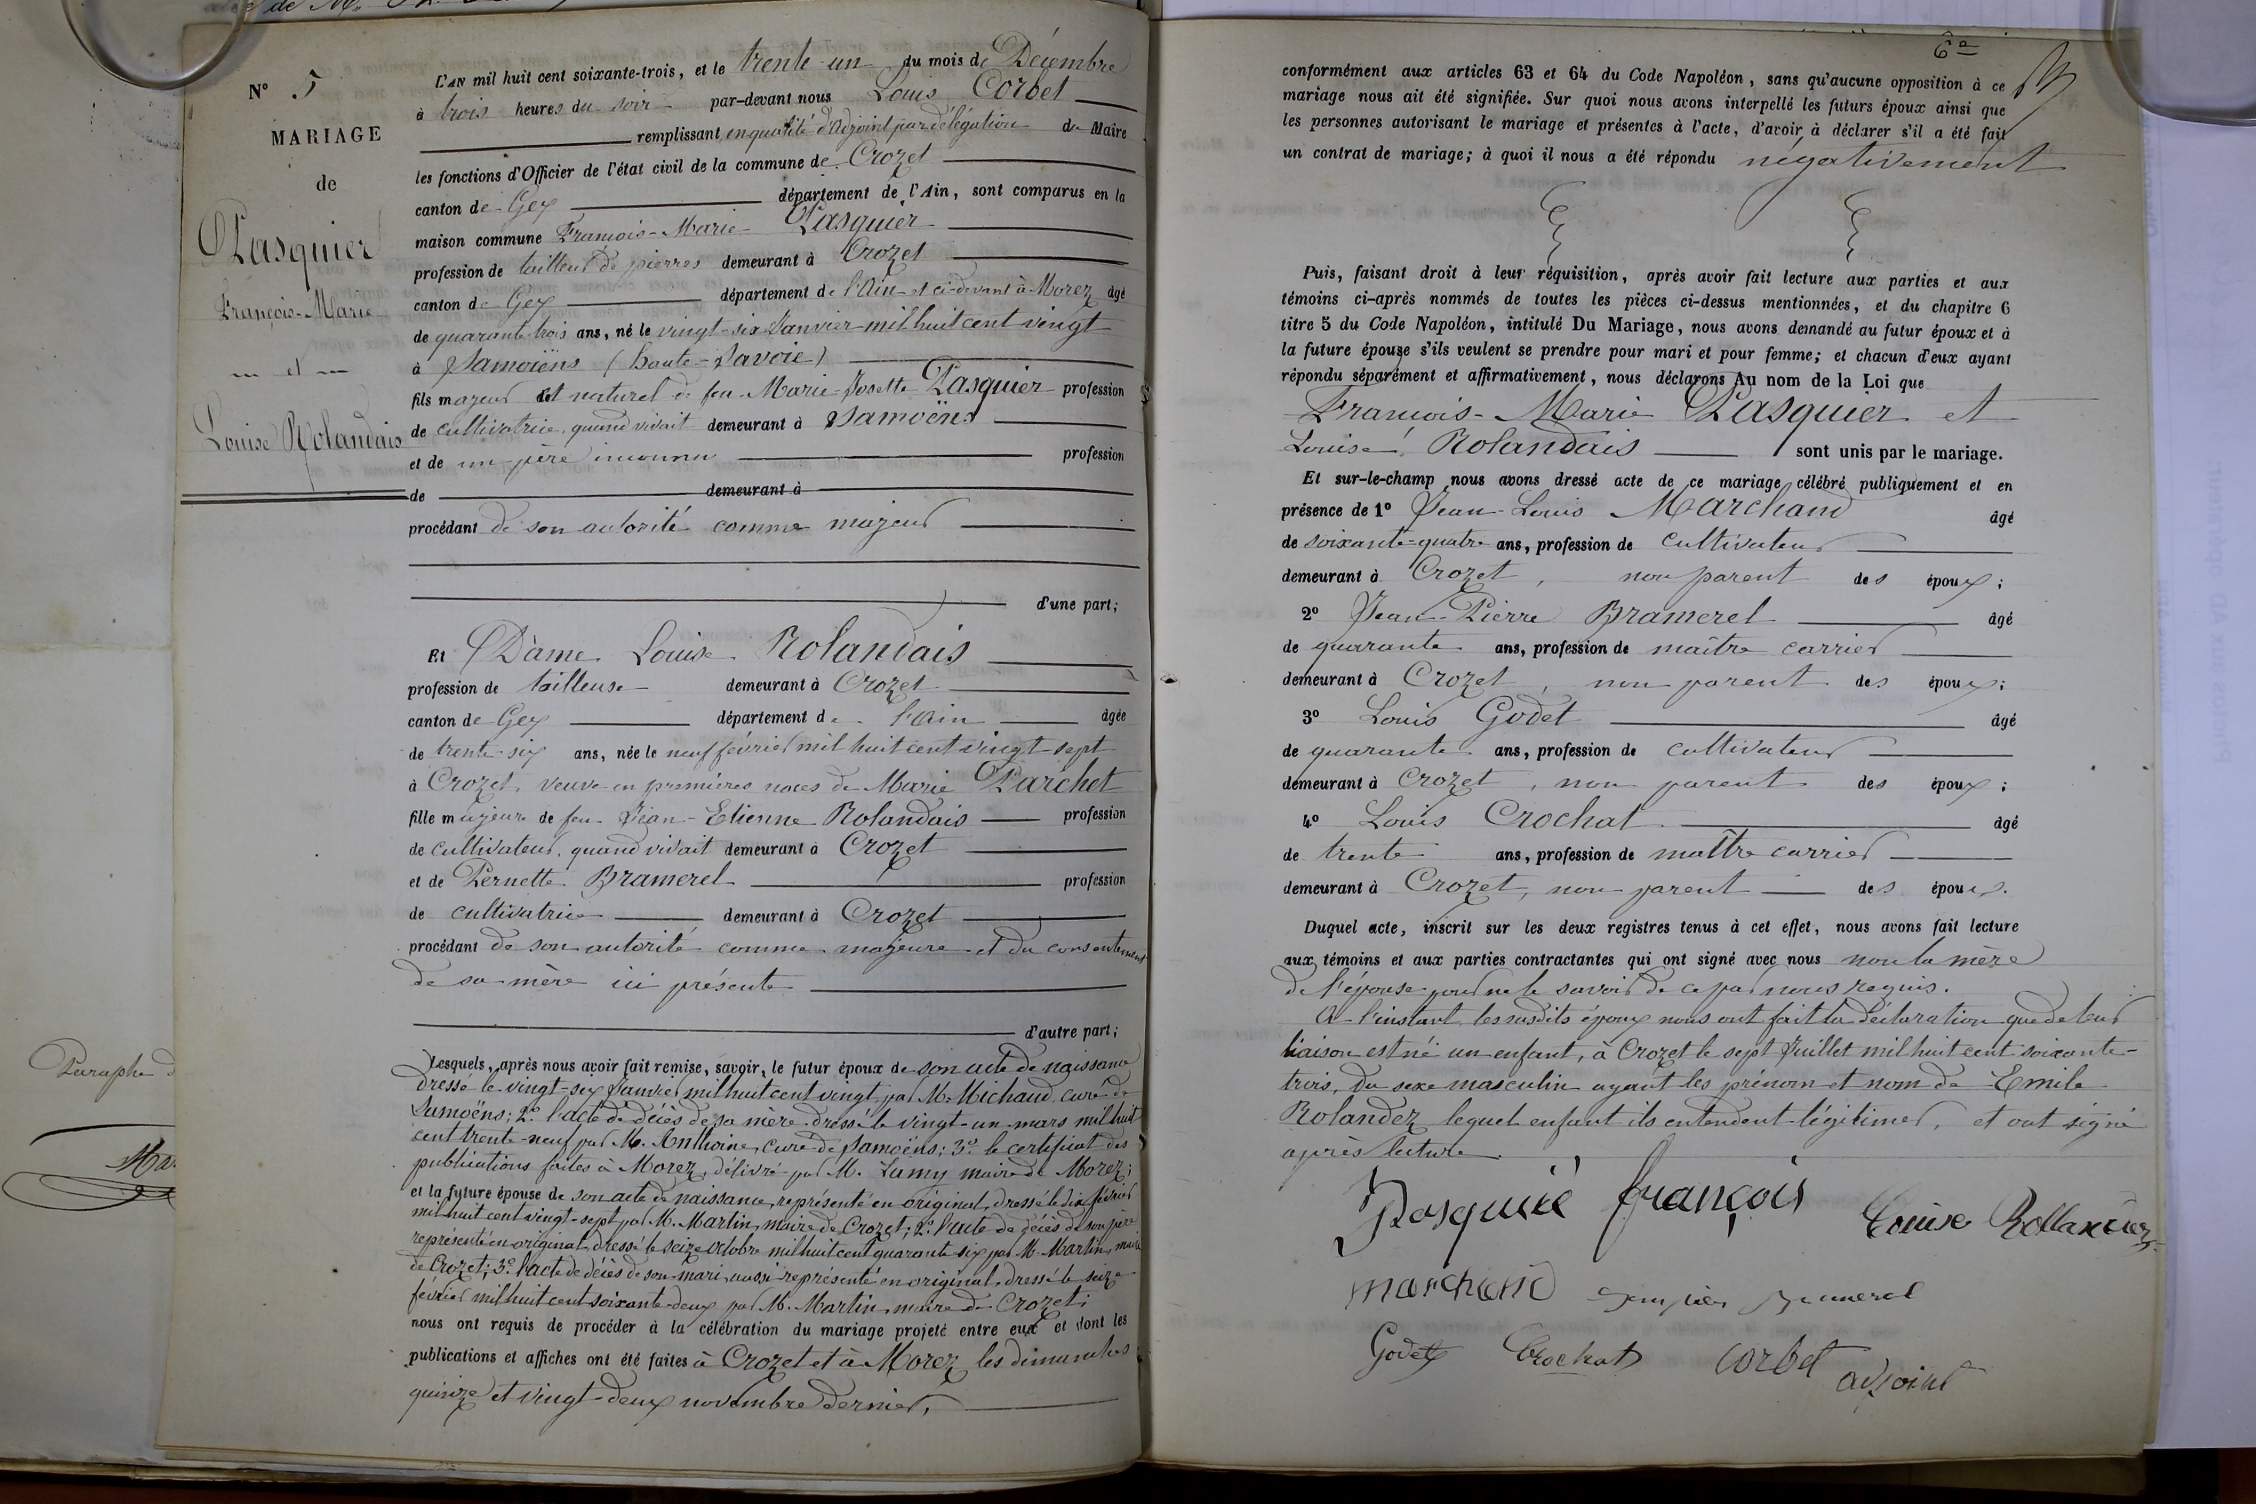 N° 5
MARIAGE
de
Pasquier
François-Marie
et
Louise Rolandais
L'AN mil huit cent soixante-trois, et le trente-un du mois de Décembre
à trois heures du soir par-devant nous Louis Corbet
remplissant en qualité d'adjoint par délégation du Maire
les fonctions d'Officier de l'état civil de la commune de Crozet
canton de Gex département de l'Ain, sont comparus en la
maison commune François-Marie Pasquier
profession de tailleur de pierres demeurant à Crozet
canton de Gex département de l'Ain et ci-devant à Morez âgé
de quarante-trois ans, né le vingt-six Janvier mil huit cent vingt
à Samoëns (haute-Savoie)
fils majeur et naturel de feu Marie-Josette Pasquier profession
de cultivatrice, quand vivait demeurant à Samoëns
et de un père inconnu profession
de demeurant à
procédant de son autorité comme majeur
d'une part;
Et Dame Louise Rolandais
profession de tailleuse demeurant à Crozet
canton de Gex département de l'Ain âgée
de trente-six ans, née le neuf février mil huit cent vingt-sept
à Crozet, veuve en premières noces de Marie Parchet
fille majeure de feu Jean-Etienne Rolandais profession
de cultivateur, quand vivait demeurant à Crozet
et de Pernette Bramerel profession
de cultivatrice demeurant à Crozet
procédant de son autorité comme majeure et du consentement
de sa mère ici présente
d'autre part;
Lesquels, après nous avoir fait remise, savoir, le futur époux de son acte de naissance
dressé le vingt-six Janvier mil huit cent vingt par M. Michaud, curé de
Samoëns; 2° l'acte de décès de sa mère dressé le vingt-un mars mil huit
cent trente-neuf par M. Anthoine, curé de Samoëns; 3° le certificat des
publications faites à Morez, délivré par M. Lamy maire de Morez;
et la future épouse de son acte de naissance, représenté en original, dressé le dix février
mil huit cent vingt-sept par M. Martin, maire de Crozet; 2° l'acte de décès de son père
représenté en original, dressé le seize octobre mil huit cent quarante-six par M. Martin, maire
de Crozet; 3° l'acte de décès de son mari, aussi représenté en original, dressé le seize
février mil huit cent soixante-deux par M. Martin, maire de Crozet;
nous ont requis de procéder à la célébration du mariage projeté entre eux et dont les
publications et affiches ont été faites à Crozet et à Morez les dimanches
quinze et vingt-deux novembre dernier,
6e
conformément aux articles 63 et 64 du Code Napoléon, sans qu'aucune opposition à ce
mariage nous ait été signifiée. Sur quoi nous avons interpellé les futurs époux ainsi que
les personnes autorisant le mariage et présentes à l'acte, d'avoir à déclarer s'il a été fait
un contrat de mariage; à quoi il nous a été répondu négativement
Puis, faisant droit à leur réquisition, après avoir fait lecture aux parties et aux
témoins ci-après nommés de toutes les pièces ci-dessus mentionnées, et du chapitre 6
titre 5 du Code Napoléon, intitulé Du Mariage, nous avons demandé au futur époux et à
la future épouse s'ils veulent se prendre pour mari et pour femme; et chacun d'eux ayant
répondu séparément et affirmativement, nous déclarons Au nom de la Loi que
François-Marie Pasquier et
Louise Rolandais sont unis par le mariage.
Et sur-le-champ nous avons dressé acte de ce mariage célébré publiquement et en
présence de 1° Jean-Louis Marchand âgé
de soixante-quatre ans, profession de cultivateur
demeurant à Crozet, non parent des époux;
2° Jean-Pierre Bramerel âgé
de quarante ans, profession de maître carrier
demeurant à Crozet, non parent des époux;
3° Louis Godet âgé
de quarante ans, profession de cultivateur
demeurant à Crozet, non parent des époux;
4° Louis Crochat âgé
de trente ans, profession de maître carrier
demeurant à Crozet, non parent des époux.
Duquel acte, inscrit sur les deux registres tenus à cet effet, nous avons fait lecture
aux témoins et aux parties contractantes qui ont signé avec nous non la mère
de l'épouse pour ne le savoir de ce par nous requis.
A l'instant les susdits époux nous ont fait la déclaration que de leur
liaison est né un enfant, à Crozet le sept Juillet mil huit cent soixante-
trois, du sexe masculin ayant les prénom et nom de Emile
Rolandez lequel enfant ils entendent légitimer, et ont signé
après lecture.
Pasquié françois
Louise Rollandez
marchand
Bramerel
Godet Crochat Corbet
adjoint
Paraphe d
Mar